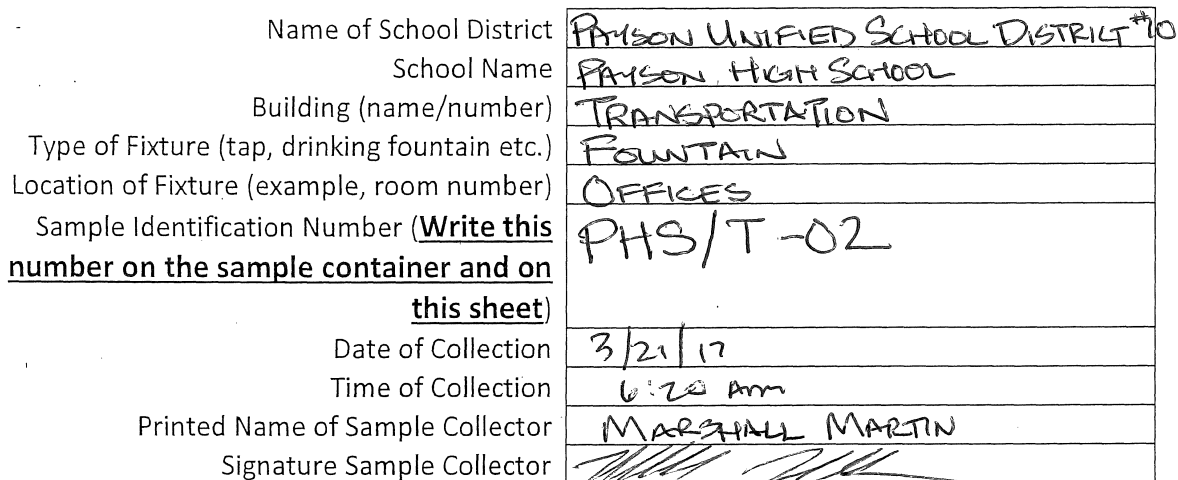 Name of School District PAYSON UNIFIED SCHOOL DISTRICT #10
School Name PAYSON HIGH SCHOOL
Building (name/number) TRANSPORTATION
Type of Fixture (tap, drinking fountain etc.) FOUNTAIN
Location of Fixture (example, room number) OFFICES
Sample Identification Number (Write this PHS/T-02
number on the sample container and on
this sheet)
Date of Collection 3/21/17
Time of Collection 6:20 Am
Printed Name of Sample Collector MARSHALL MARTIN
Signature Sample Collector